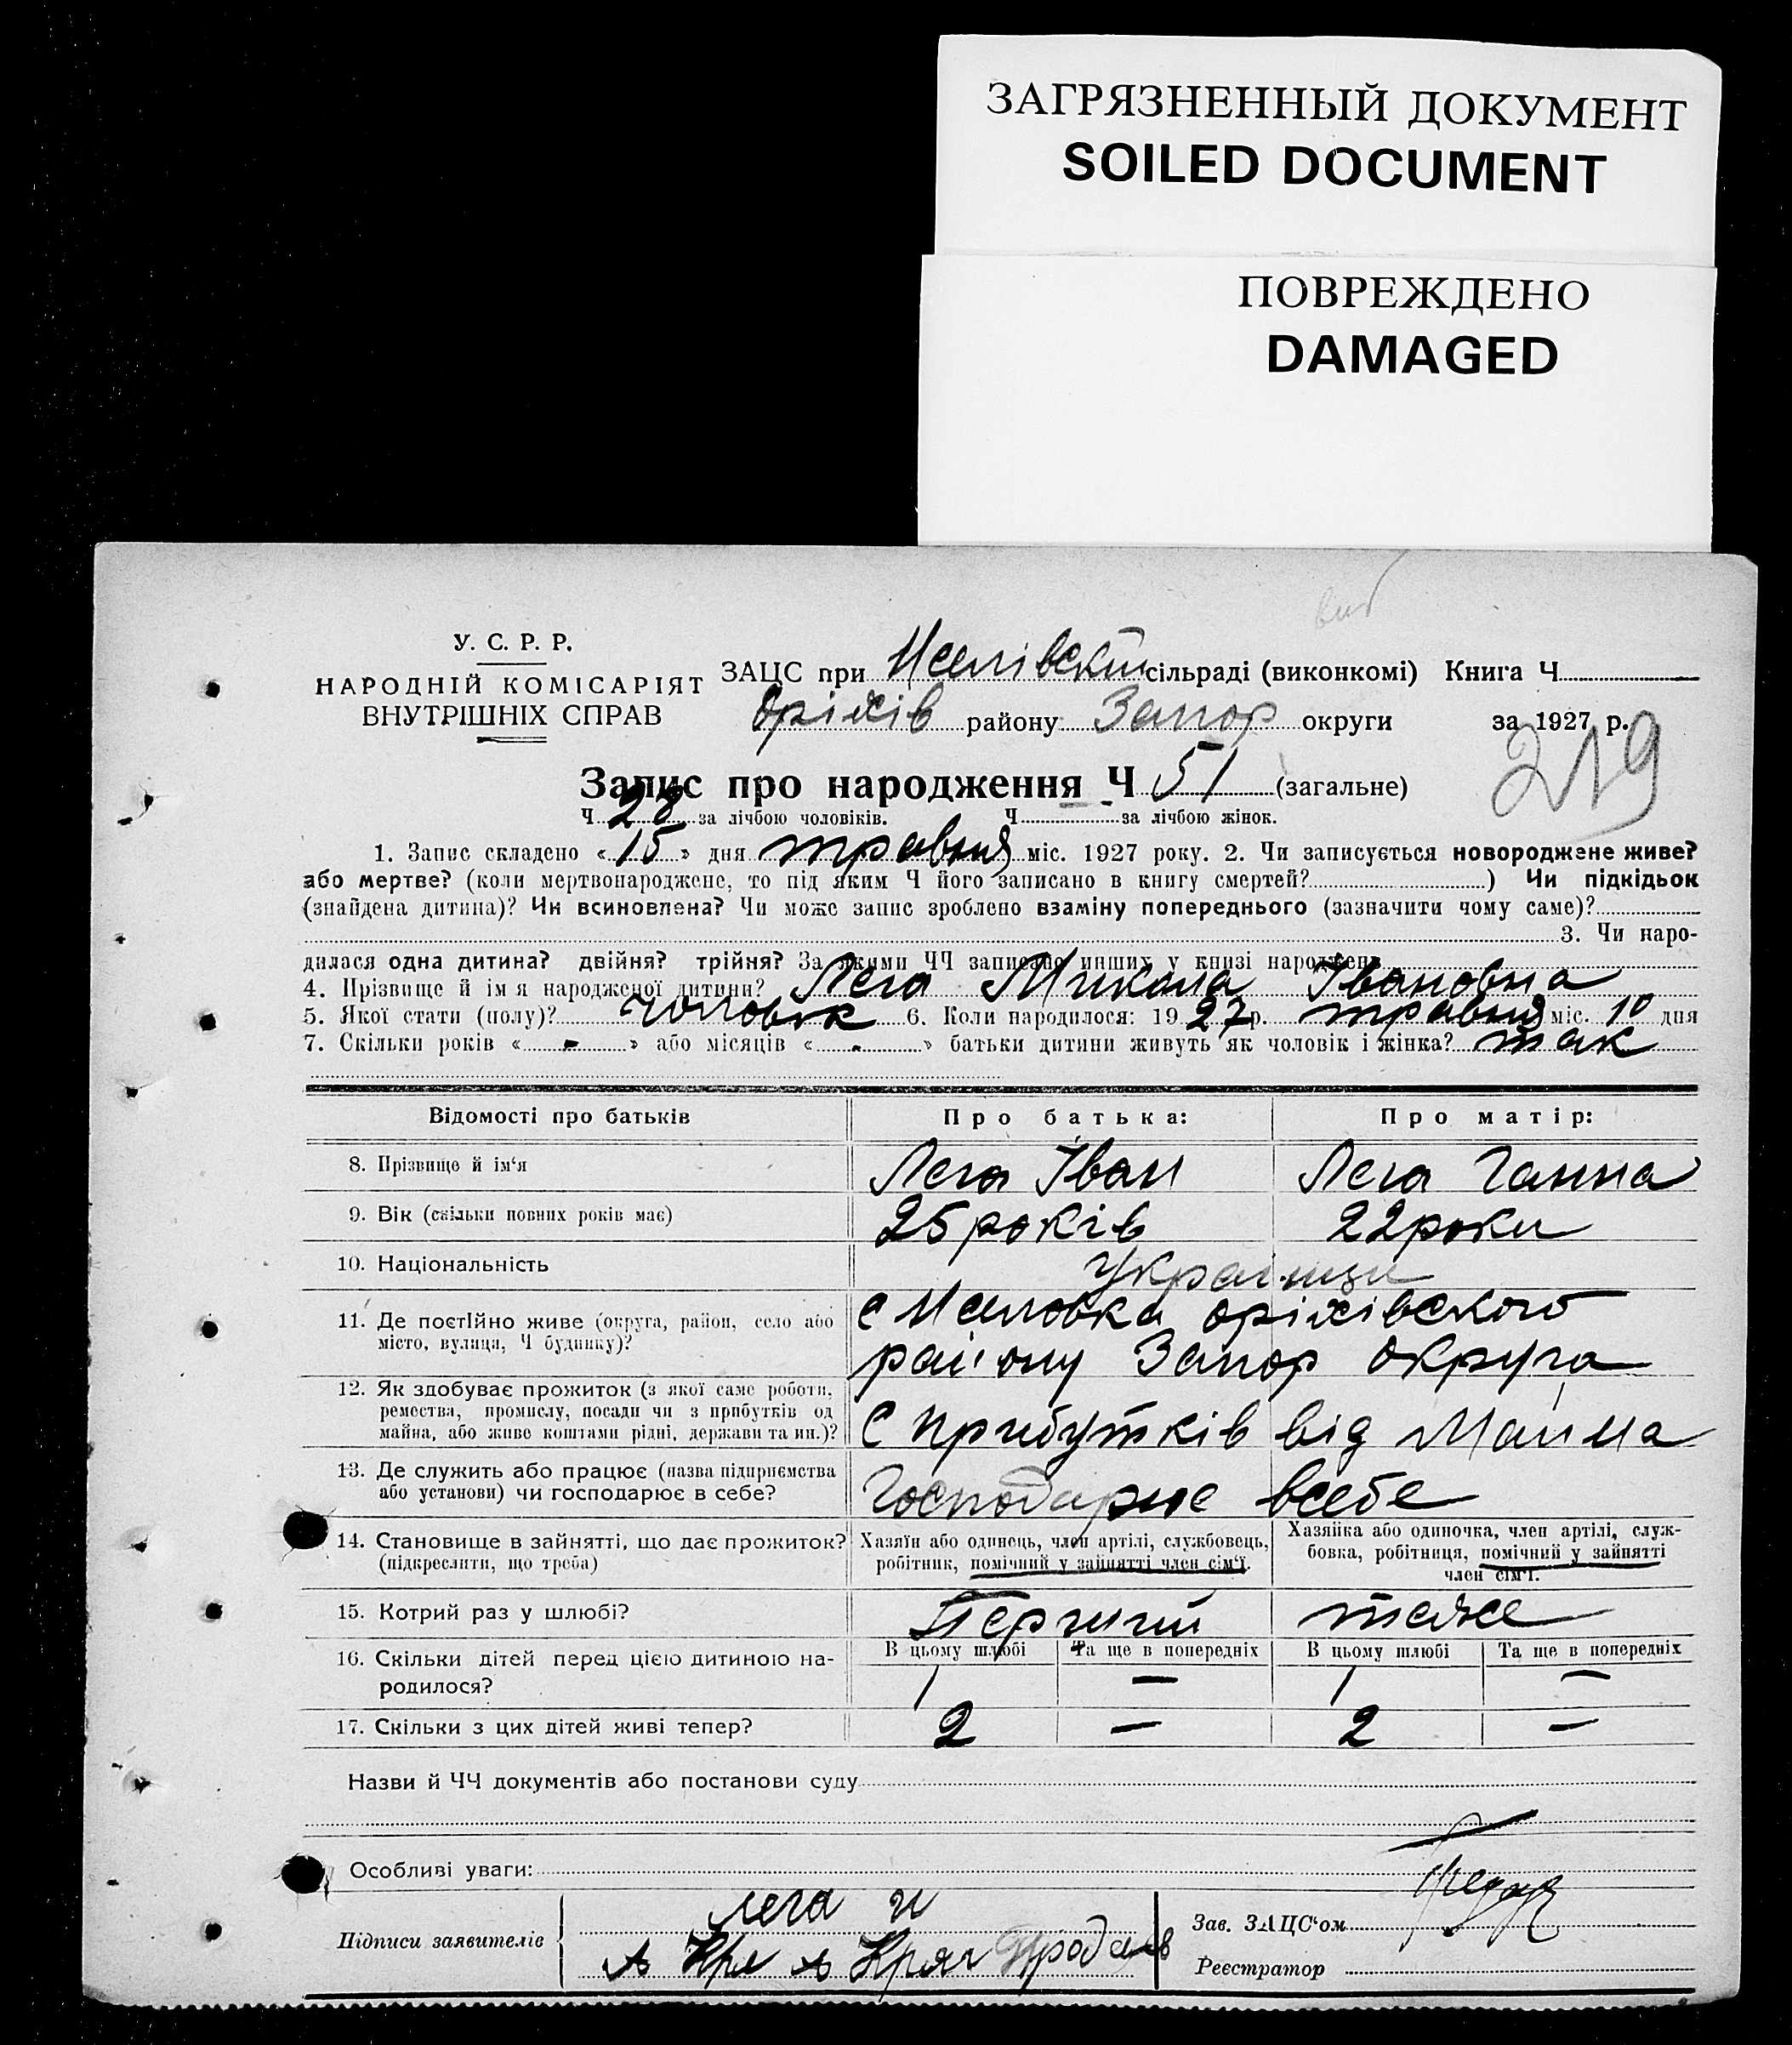 ЗАГРЯЗНЕННЫЙ ДОКУМЕНТ
SOILED DOCUMENT
ПОВРЕЖДЕНО
DAMAGED
У. С. Р. Р.
НАРОДНІЙ КОМІСАРІЯТ
ВНУТРІШНІХ СПРАВ
ЗАЦС при сільраді (виконкомі) Книга Ч
Оріхів району Запор округи за 1927 р.
219
Запис про народження Ч 51 (загальне)
Ч 28 за лічбою чоловіків. Ч за лічбою жінок.
1. Запис складено « 15 » дня травня міс. 1927 року. 2. Чи записується новороджене живе?
або мертве? (коли мертвонароджене, то під яким Ч його записано в книгу смертей? ) Чи підкідьок
(знайдена дитина)? Чи всиновлена? Чи може запис зроблено взаміну попереднього (зазначити чому саме)?
3. Чи наро-
дилася одна дитина? двійня? трійня? За якими ЧЧ записано инших у книзі народжень
4. Прізвище й ім я народженої дитини? Лега Микола Івановна
5. Якої стати (полу)? чоловік 6. Коли народилося: 19 27 р. травня міс. 10 дня
7. Скільки років « - » або місяців « - » батьки дитини живуть як чоловік і жінка? так
Відомості про батьків Про батька: Про матір:
8. Прізвище й ім'я Лега Іван Лега Ганна
9. Вік (скільки повних років має) 25 років 22 роки
10. Національність Українци
11. Де постійно живе (округа, район, село або
місто, вулиця, Ч будинку)?
с оріхівского
району Запор Округа
12. Як здобуває прожиток (з якої саме роботи,
ремества, промислу, посади чи з прибутків од
майна, або живе коштами рідні, держави та ин.)?
С прибутків від Майна
13. Де служить або працює (назва підприємства
або установи) чи господарює в себе?
Господарює всебе
14. Становище в зайнятті, що дає прожиток?
(підкреслити, що треба)
Хазяїн або одинець, член артілі, службовець,
робітник, помічний у зайнятті член сім'ї.
Хазяйка або одиночка, член артілі, служ-
бовка, робітниця, помічний у зайнятті
член сім'ї.
15. Котрий раз у шлюбі? Перший теже
16. Скільки дітей перед цією дитиною на-
родилося?
В цьому шлюбі Та ще в попередніх В цьому шлюбі Та ще в попередніх
1 — 1 —
17. Скільки з цих дітей живі тепер? 2 — 2 —
Назви й ЧЧ документів або постанови суду
Особливі уваги:
Підписи заявителів
лега и
Зав. ЗАЦС'ом
Реєстратор